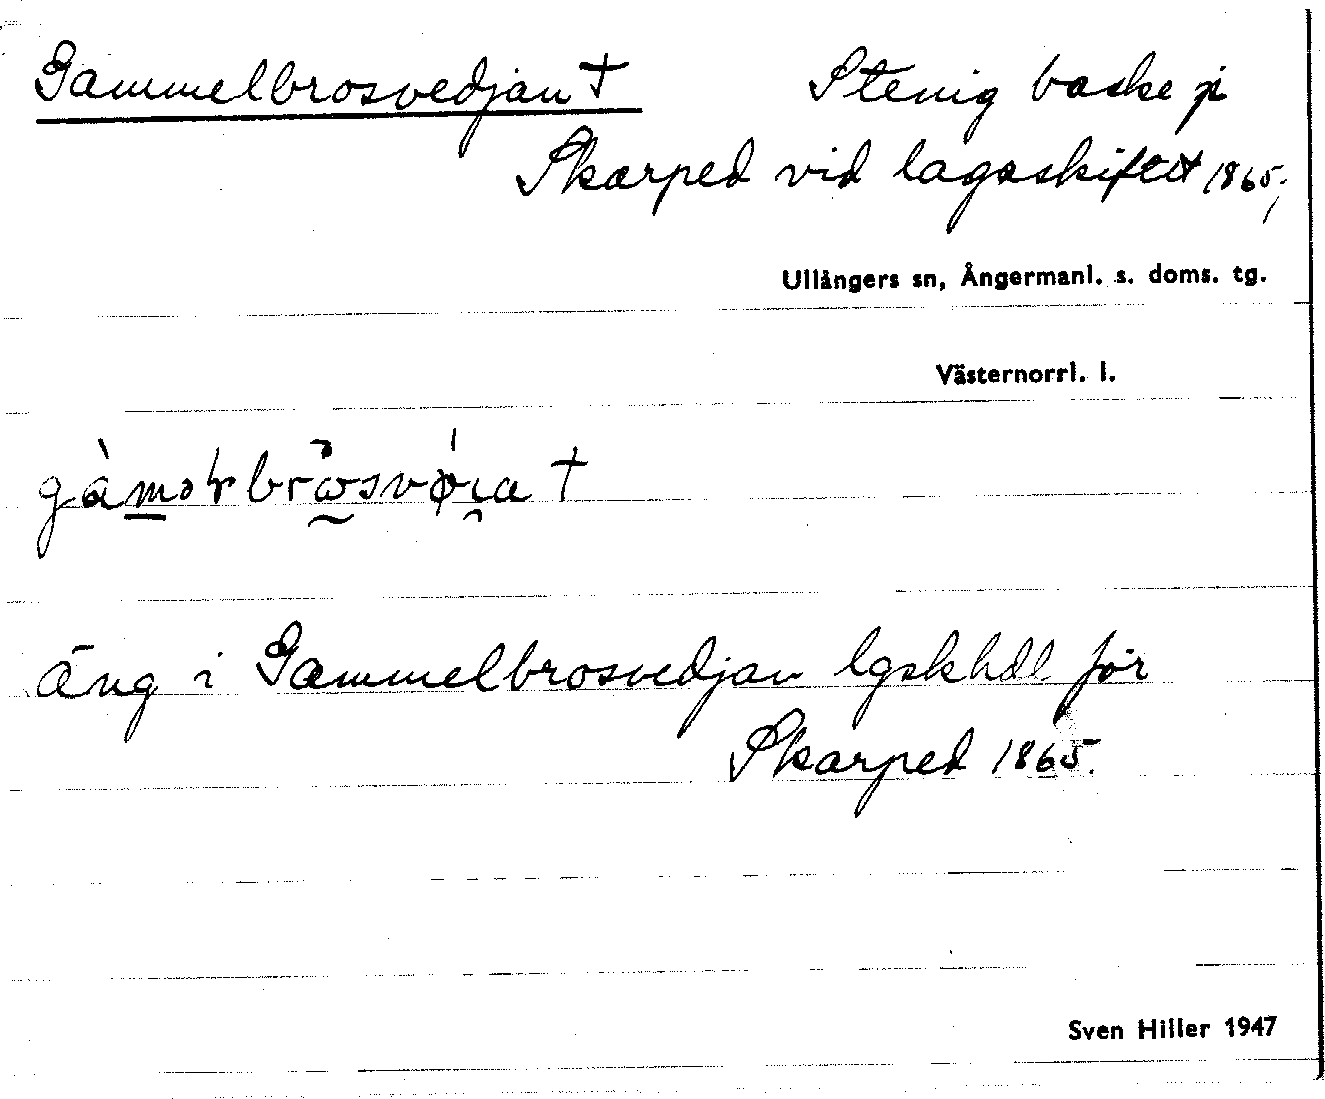 Gammelbrosvedjan † Stenig backe på
Skarped vid lagaskiftet 1865;
Ullångers sn, Ångermanl. s. doms. tg.
Västernorrl. l.
†
Äng i Gammelbrosvedjan lgskhdl för
Skarped 1865.
Sven Hiller 1947